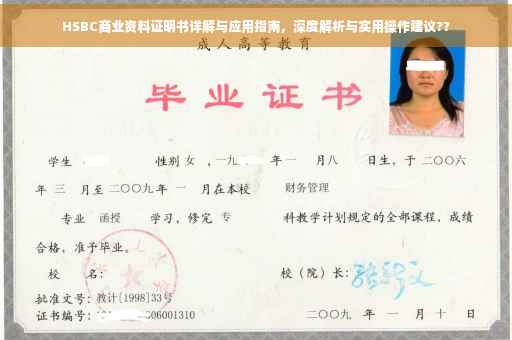 HSBC商业资料证明书详解与应用指南，深度解析与实用操作建议??
成人高等教育
毕业证书
学生 性别 女 ，一九 年 一 月 八 日生，于 二〇〇六
年 三 月至 二〇〇九 年 一 月在本校 财务管理
专业 函授 学习，修完 专 科教学计划规定的全部课程，成绩
合格，准予毕业。
校 名： 校（院）长：
批准文号：教计[1998]33号
证书编号： 06001310 二〇〇九 年 一 月 十 日